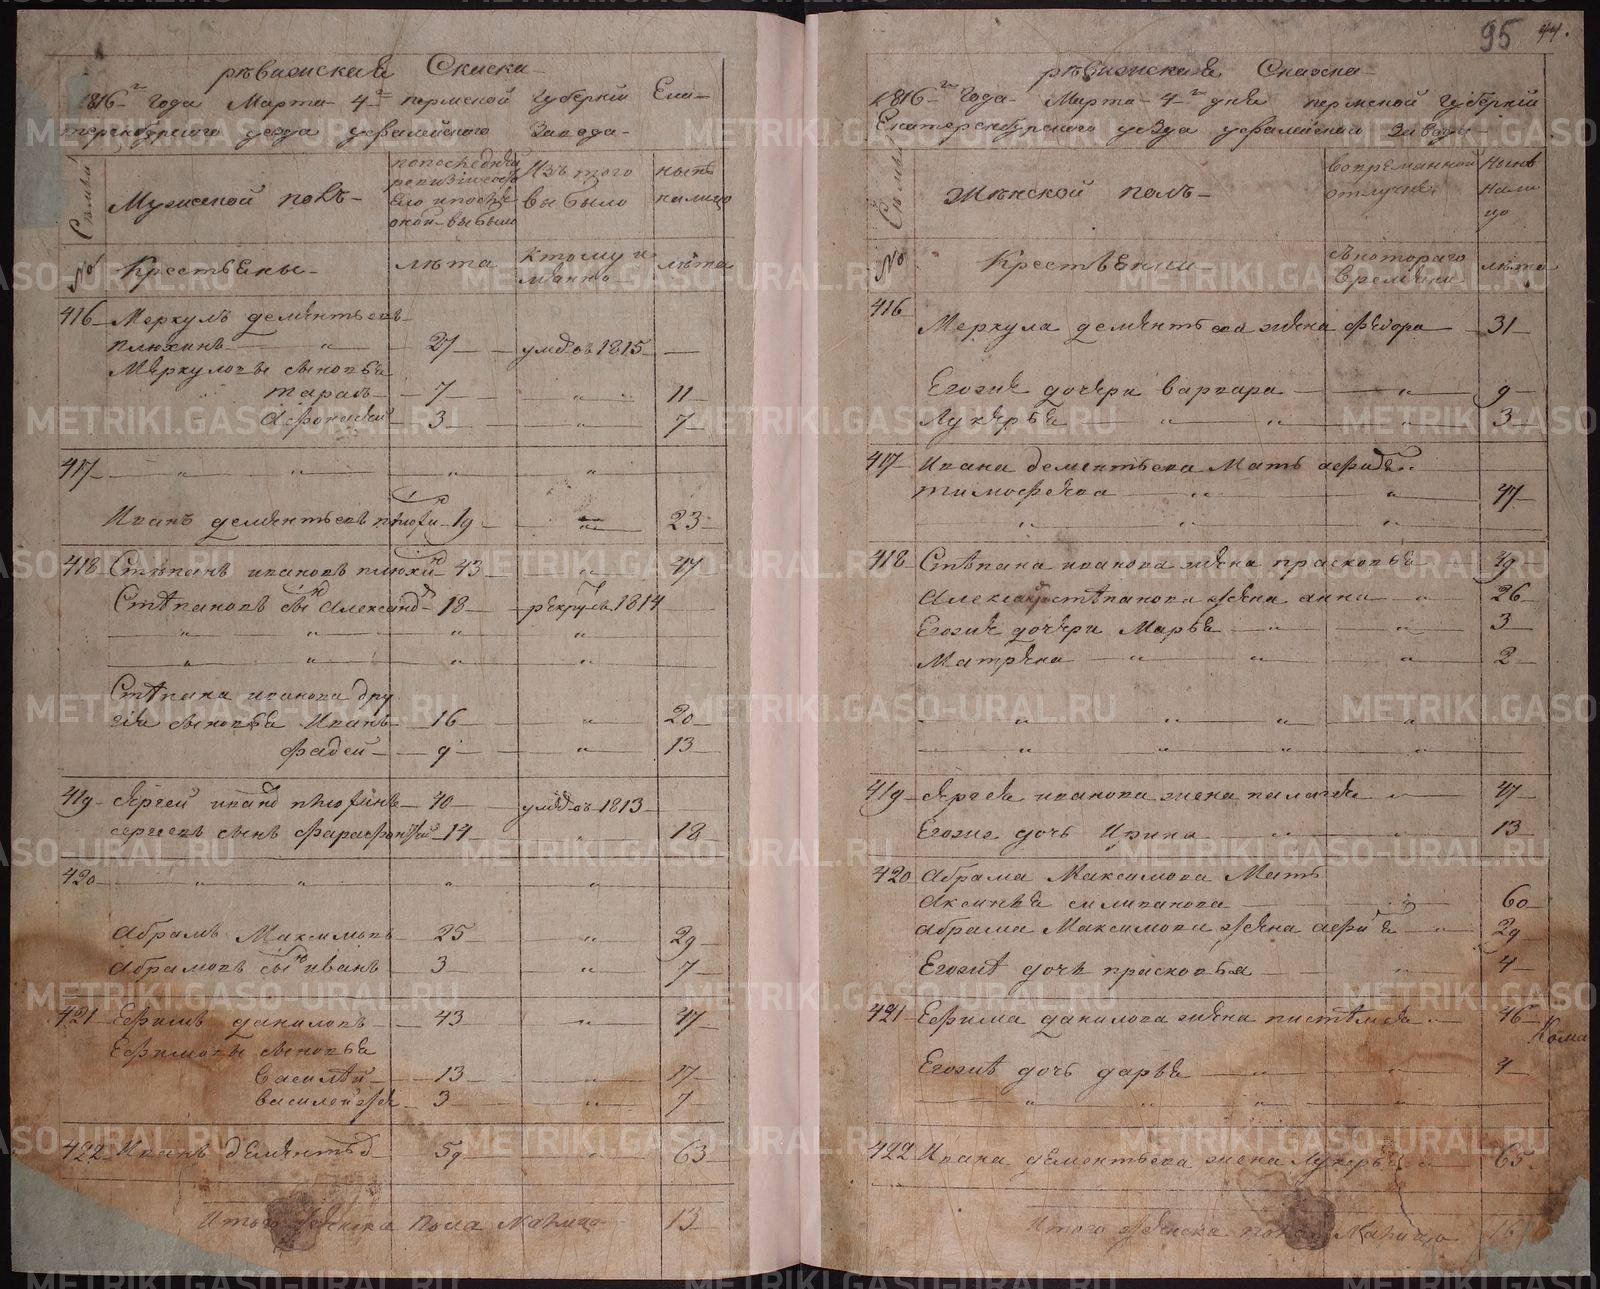 рѣвижская Скаска
1816-г года Марта 4-г пермской губерніи Ека-
теренбурского уезда уфалейского Завода
Сѣмьи
Мужеской полъ
попоследней ревизіи состояло и после оной выбыло
Изъ того выбыло
нынѣ налицо
№
Крестьяны
лѣта
Кто му и мянно
лѣта
416 Меркулъ деменьтьевъ
плюхинъ 27 умъ въ 1815
Меркуловы сыновья
тарасъ 7 11
Афонасей 3 7
417
Иванъ деменьтьевъ плюхи 19 23
418 Стѣпанъ ивановъ плюхи 43 47
Стѣпановъ сынъ Александ 18 рекрутъ 1814
Стѣпана иванова дру
гіе сыновья Иванъ 16 20
фадей 9 13
419 Сяргей иванъ плюхинъ 40 умъ въ 1813
сергеевъ сынъ фарафонтей 14 18
420
Абрамъ Максимовъ 25 29
Абрамовъ сынъ иванъ 3 7
421 Ефимъ даниловъ 43 47
Ефимовы сыновья
Василѣй 13 17
василей же 3 7
422 Иванъ деменьтьѣ 59 63
Итого пола Налицо 13
95 44.
рѣвижская Скаска
1816-г года Марта 4-г дня пермской губерніи
Екатеренбурского уезда уфалейского завода
Сѣмьи
Жѣнской полъ
вовременной отлучкѣ
Нынѣ нали цо
№
Крестьянки
съ которого времени
лѣта
416
Меркула деменьтьева жена федора 31
Егожи дочери варвара 9
Лукерья 3
417 Ивана дементьева Мать афидья
тимофеева 47
418 Стѣпана иванова жена прасковья 49
Александра стѣпанова жена анна 26
Егожи дочери Марья 3
Матрена 2
419 Сяргея иванова жена палагея 47
Егоже дочь Ирина 13
420 Абрама Максимова Мать
Аксинья силиванова 60
абрама Максимова жена афи я 29
Егожѣ дочь прасковья 4
421 Ефима данилова жена пистѣмея 46
Кома
Егожѣ дочь дарья 4
422 Ивана дементьева жена Лукерья 65
Итого женска пола Налицо 16